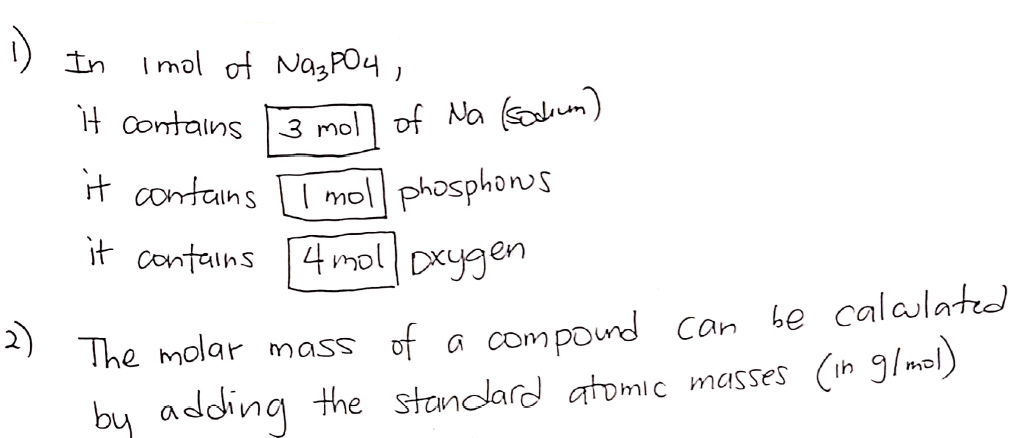 1) In 1mol of Na₃PO4,
it contains 3 mol of Na (sodium)
it contains 1 mol phosphorus
it contains 4 mol oxygen
2) The molar mass of a compound can be calculated
by adding the standard atomic masses (in g/mol)